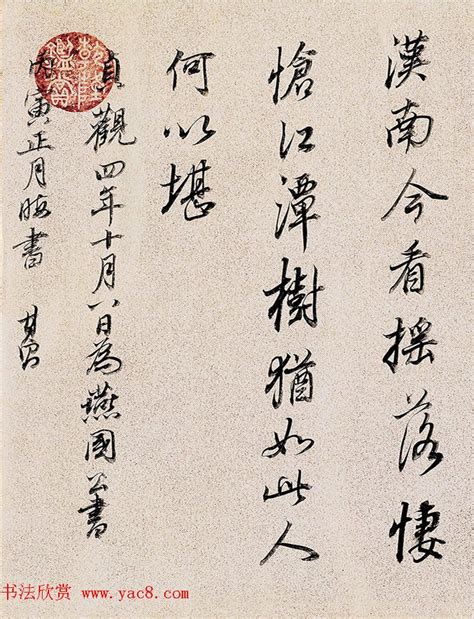 漢南今看摇落悽
愴江潭樹猶如此人
何以堪
貞觀四年十月八日為燕國公書
丙寅正月晦書
书法欣赏 www.yac8.com